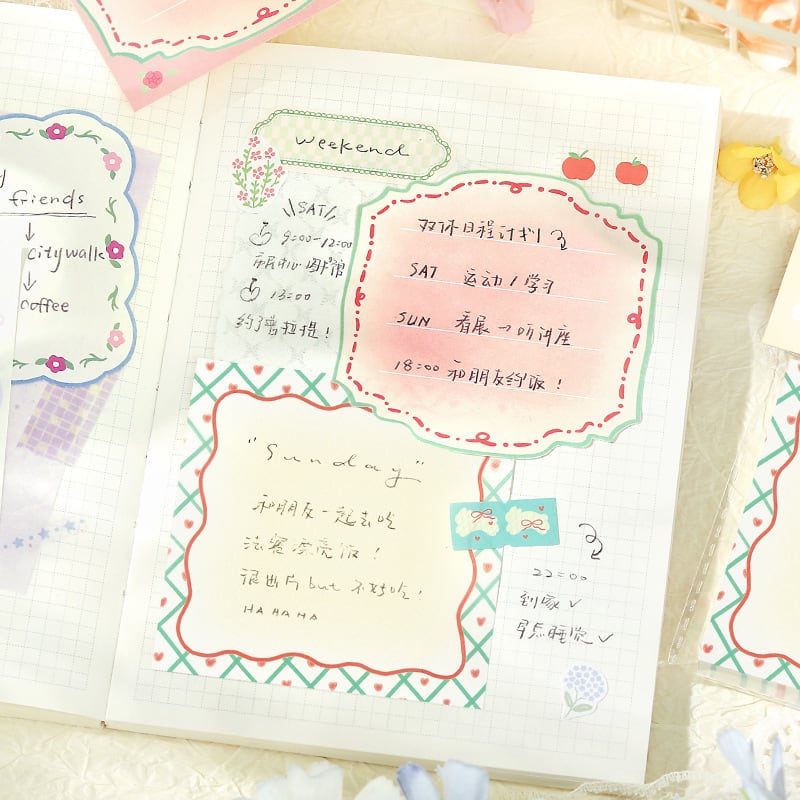 friends
↓
citywalk
↓
coffee
weekend
\\SAT//
9:00-12:00
市中心图书馆
13:00
约了普拉提!
双休日程计划
SAT 运动/学习
SUN 看展→听讲座
18:00 和朋友约饭!
"Sunday"
和朋友一起去吃
法餐漂亮饭!
很出片but不好吃!
HAHAHA
22:00
到家✓
早点睡觉✓